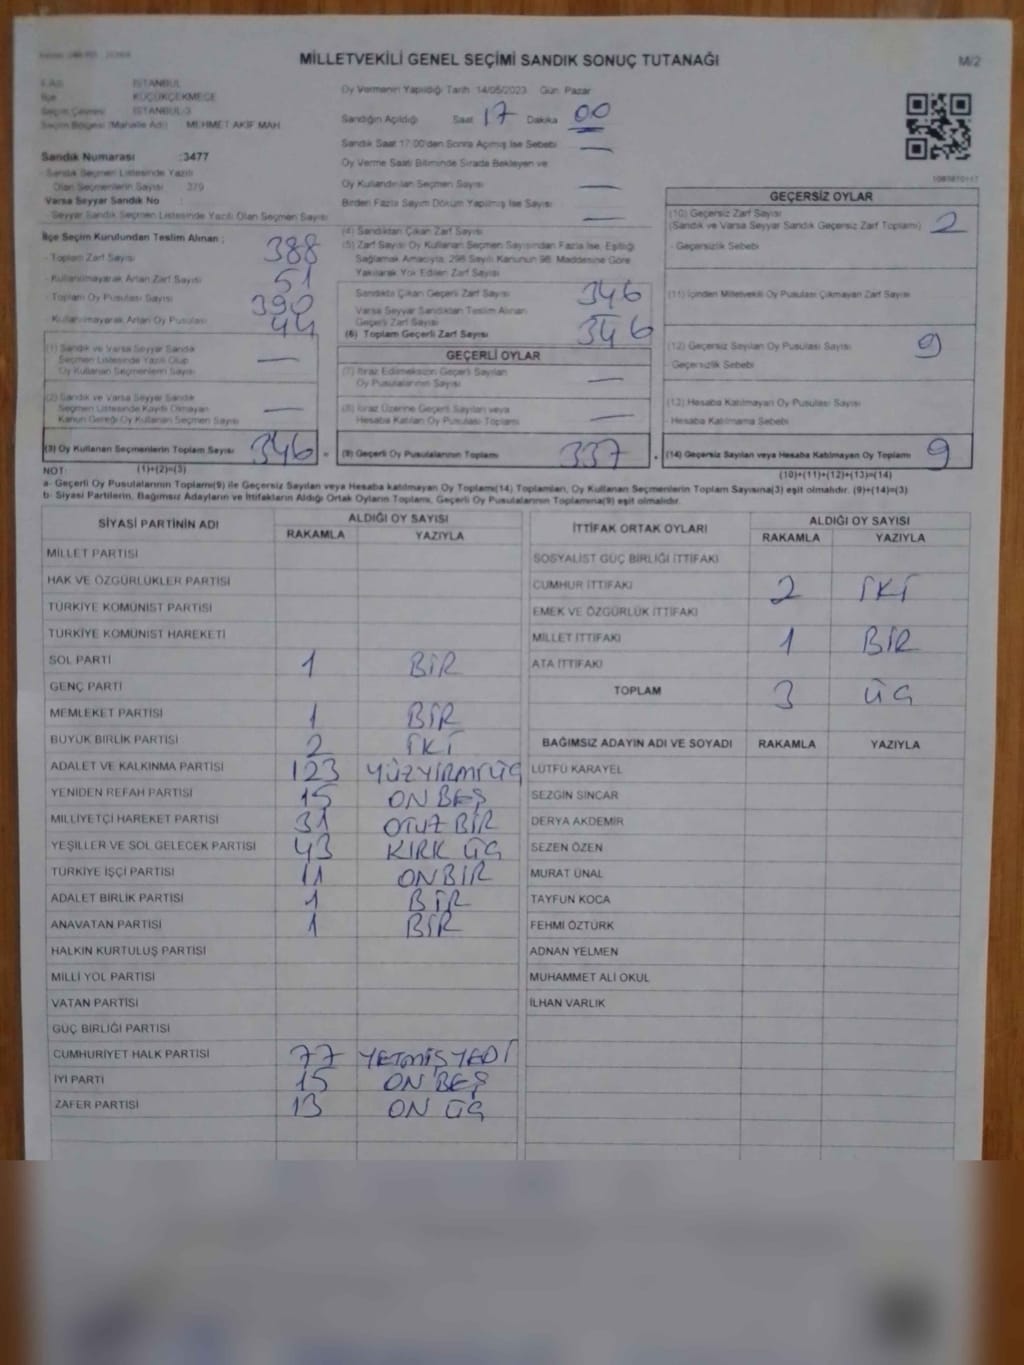 MİLLETVEKİLİ GENEL SEÇİMİ SANDIK SONUÇ TUTANAĞI
M/2
İSTANBUL
İlçe KÜÇÜKÇEKMECE
Seçim Çevresi İSTANBUL-3
Seçim Bölgesi (Mahalle Adı) MEHMET AKİF MAH
Sandık Numarası :3477
Sandık Seçmen Listesinde Yazılı
Olan Seçmenlerin Sayısı 379
Varsa Seyyar Sandık No :
Seyyar Sandık Seçmen Listesinde Yazılı Olan Seçmen Sayısı
İlçe Seçim Kurulundan Teslim Alınan ;
- Toplam Zarf Sayısı 388
- Kullanılmayarak Artan Zarf Sayısı 51
- Toplam Oy Pusulası Sayısı 390
- Kullanılmayarak Artan Oy Pusulası 44
(1) Sandık ve Varsa Seyyar Sandık
Seçmen Listesinde Yazılı Olup
Oy Kullanan Seçmenlerin Sayısı —
(2) Sandık ve Varsa Seyyar Sandık
Seçmen Listesinde Kayıtlı Olmayan
Kanun Gereği Oy Kullanan Seçmen Sayısı —
(3) Oy Kullanan Seçmenlerin Toplam Sayısı 346 =
Oy Vermenin Yapıldığı Tarih 14/05/2023 Gün Pazar
Sandığın Açıldığı Saat 17 Dakika 00
Sandık Saat 17:00'den Sonra Açılmış İse Sebebi —
Oy Verme Saati Bitiminde Sırada Bekleyen ve
Oy Kullandırılan Seçmen Sayısı —
Birden Fazla Sayım Döküm Yapılmış İse Sayısı —
(4) Sandıktan Çıkan Zarf Sayısı
(5) Zarf Sayısı Oy Kullanan Seçmen Sayısından Fazla İse, Eşitliği
Sağlamak Amacıyla, 298 Sayılı Kanunun 98. Maddesine Göre
Yakılarak Yok Edilen Zarf Sayısı
Sandıkta Çıkan Geçerli Zarf Sayısı 346
Varsa Seyyar Sandıktan Teslim Alınan
Geçerli Zarf Sayısı
(6) Toplam Geçerli Zarf Sayısı 346
GEÇERLİ OYLAR
(7) İtiraz Edilmeksizin Geçerli Sayılan
Oy Pusulalarının Sayısı —
(8) İtiraz Üzerine Geçerli Sayılan veya
Hesaba Katılan Oy Pusulaları Toplamı —
(9) Geçerli Oy Pusulalarının Toplamı 337 +
GEÇERSİZ OYLAR
(10) Geçersiz Zarf Sayısı
(Sandık ve Varsa Seyyar Sandık Geçersiz Zarf Toplamı) 2
- Geçersizlik Sebebi
(11) İçinden Milletvekili Oy Pusulası Çıkmayan Zarf Sayısı
(12) Geçersiz Sayılan Oy Pusulası Sayısı 9
Geçersizlik Sebebi
(13) Hesaba Katılmayan Oy Pusulası Sayısı
- Hesaba Katılmama Sebebi
(14) Geçersiz Sayılan veya Hesaba Katılmayan Oy Toplamı 9
NOT: (1)+(2)=(3) (10)+(11)+(12)+(13)=(14)
a- Geçerli Oy Pusulalarının Toplamı(9) ile Geçersiz Sayılan veya Hesaba katılmayan Oy Toplamı(14) Toplamları, Oy Kullanan Seçmenlerin Toplam Sayısına(3) eşit olmalıdır. (9)+(14)=(3)
b- Siyasi Partilerin, Bağımsız Adayların ve İttifakların Aldığı Ortak Oyların Toplamı, Geçerli Oy Pusulalarının Toplamına(9) eşit olmalıdır.
SİYASİ PARTİNİN ADI ALDIĞI OY SAYISI
RAKAMLA YAZIYLA
MİLLET PARTİSİ
HAK VE ÖZGÜRLÜKLER PARTİSİ
TÜRKİYE KOMÜNİST PARTİSİ
TÜRKİYE KOMÜNİST HAREKETİ
SOL PARTİ 1 BİR
GENÇ PARTİ
MEMLEKET PARTİSİ 1 BİR
BÜYÜK BİRLİK PARTİSİ 2 İKİ
ADALET VE KALKINMA PARTİSİ 123 YÜZYİRMİÜÇ
YENİDEN REFAH PARTİSİ 15 ON BEŞ
MİLLİYETÇİ HAREKET PARTİSİ 31 OTUZ BİR
YEŞİLLER VE SOL GELECEK PARTİSİ 43 KIRK ÜÇ
TÜRKİYE İŞÇİ PARTİSİ 11 ONBİR
ADALET BİRLİK PARTİSİ 1 BİR
ANAVATAN PARTİSİ 1 BİR
HALKIN KURTULUŞ PARTİSİ
MİLLİ YOL PARTİSİ
VATAN PARTİSİ
GÜÇ BİRLİĞİ PARTİSİ
CUMHURİYET HALK PARTİSİ 77 YETMİŞ YEDİ
İYİ PARTİ 15 ON BEŞ
ZAFER PARTİSİ 13 ON ÜÇ
İTTİFAK ORTAK OYLARI ALDIĞI OY SAYISI
RAKAMLA YAZIYLA
SOSYALİST GÜÇ BİRLİĞİ İTTİFAKI
CUMHUR İTTİFAKI 2 İKİ
EMEK VE ÖZGÜRLÜK İTTİFAKI
MİLLET İTTİFAKI 1 BİR
ATA İTTİFAKI
TOPLAM 3 ÜÇ
BAĞIMSIZ ADAYIN ADI VE SOYADI RAKAMLA YAZIYLA
LÜTFÜ KARAYEL
SEZGİN SİNCAR
DERYA AKDEMİR
SEZEN ÖZEN
MURAT ÜNAL
TAYFUN KOCA
FEHMİ ÖZTÜRK
ADNAN YELMEN
MUHAMMET ALİ OKUL
İLHAN VARLIK